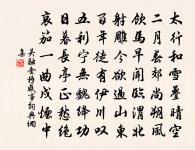 太行和雪叠晴空
二月春郊尚朔风
饮马早闻临渭北
射雕今欲过山东
百年徒有伊川叹
五利宁无魏绛功
日暮长亭正愁绝
哀笳一曲戍烟中
吴融金桥感事词典网
集